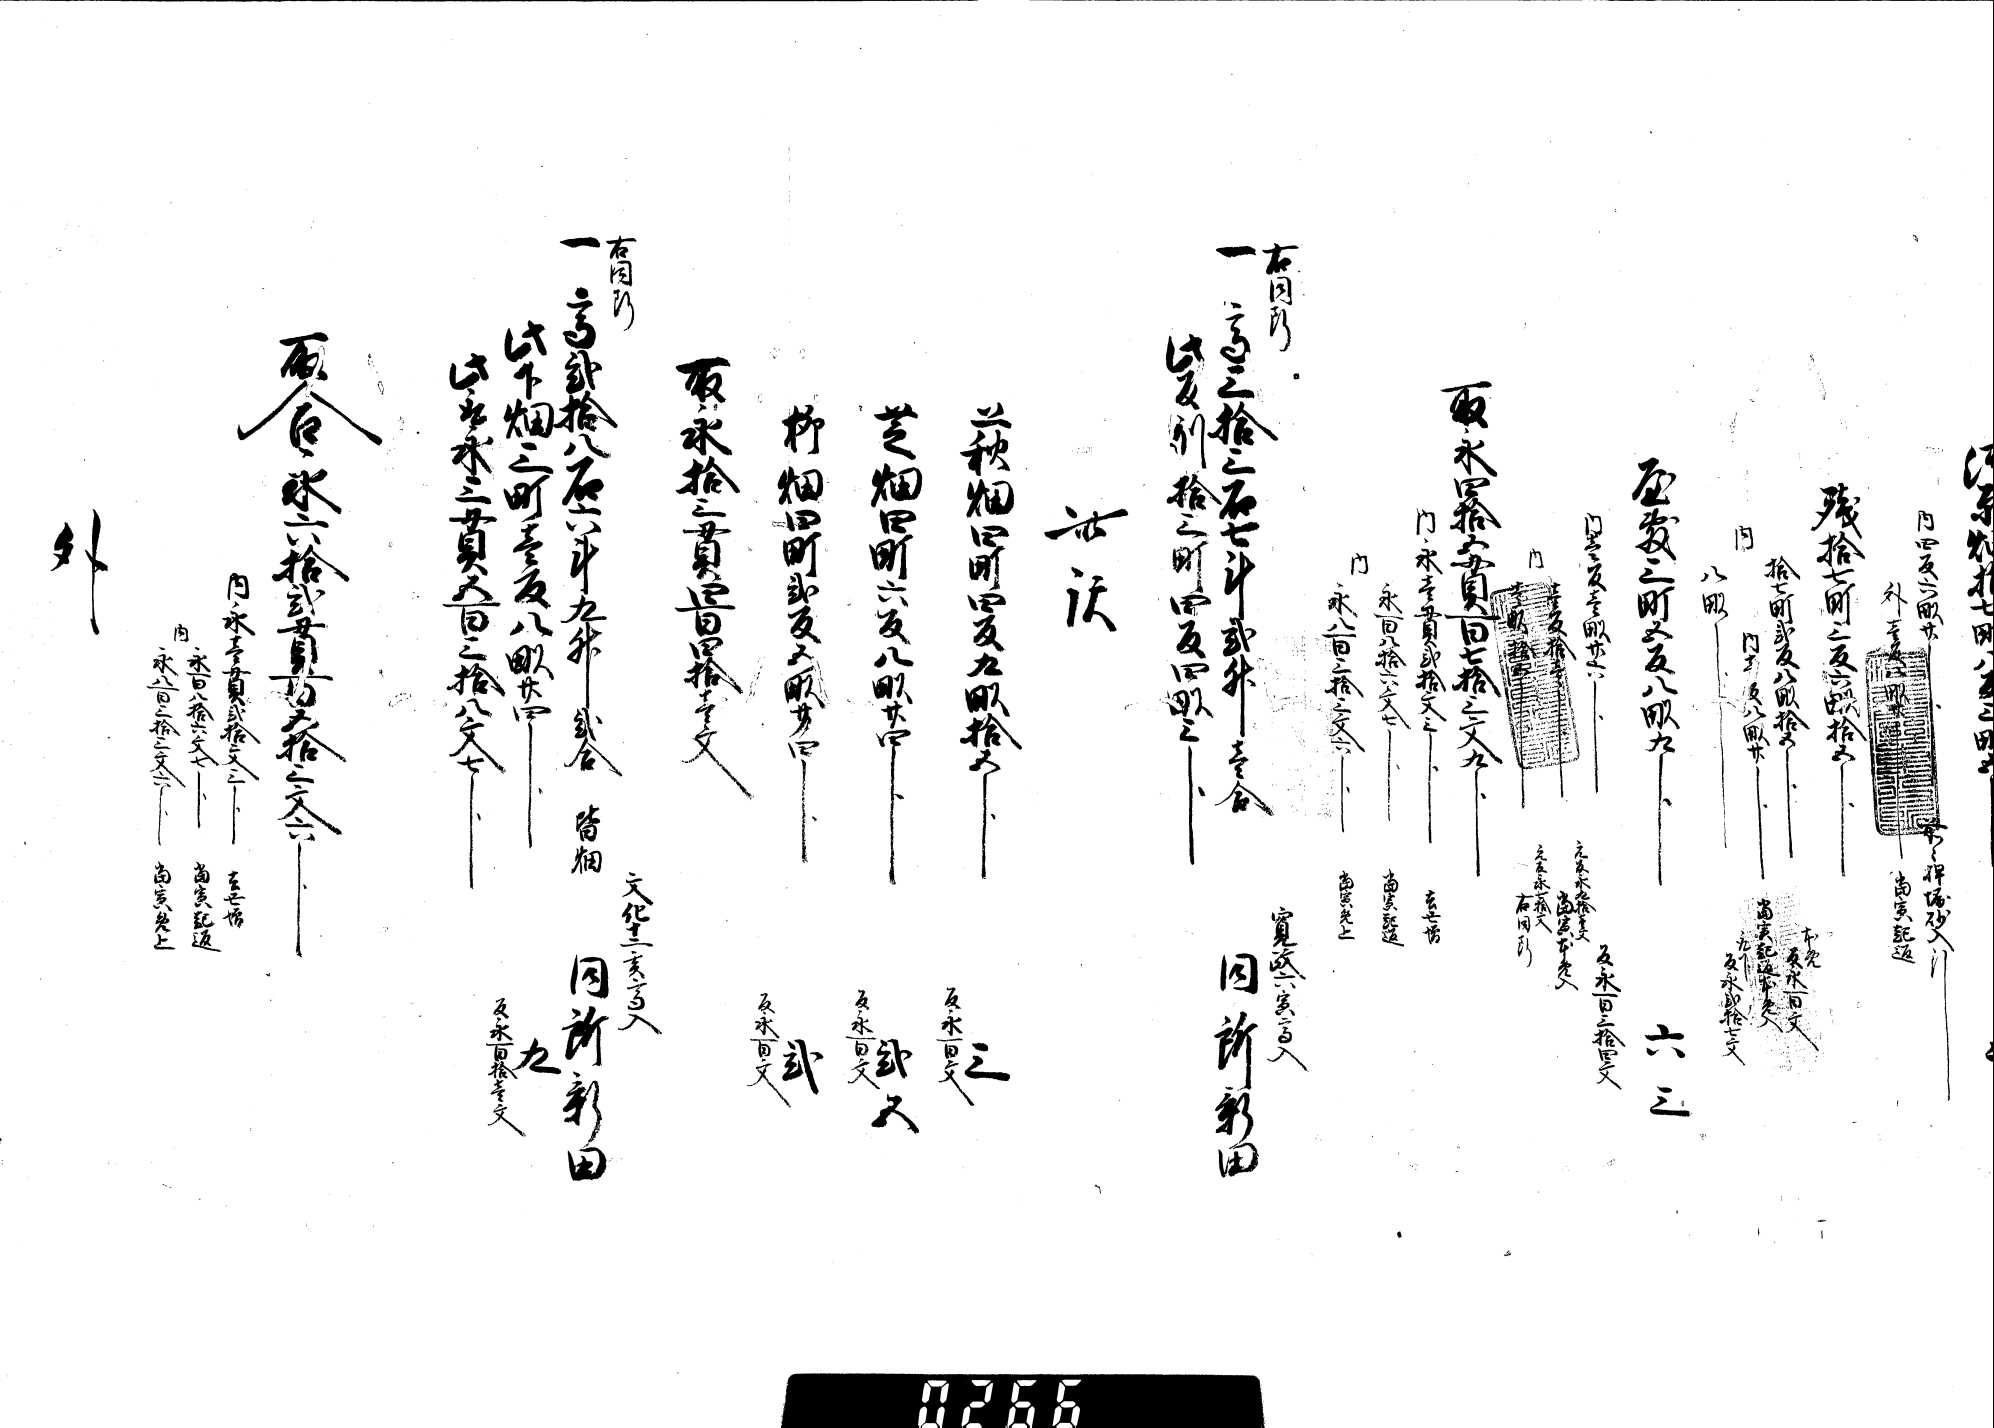 内四反六畝廿
外壱反八畝廿
当寅起返
残拾七町三反六畝拾五
拾七町弐反八畝拾五
本免
反永百文
内壱反八畝廿
当寅起返本免入
内
八畝
反永弐拾七文
屋敷三町五反八畝九
六三
内壱反壱畝廿六
反永百三拾四文
内
壱反拾壱
元反永九拾壱文
当寅本免入
壱畝拾四
元反永七拾文
右同断
取永四拾五貫百七拾三文九
内永壱貫弐拾文三
去丑増
内
永百八拾六文七
当寅起返
永八百三拾三文六
当寅免上
右同断
一高三拾三石七斗弐升壱合
寛政六寅高入
同所新田
此反別拾三町四反四畝三
此訳
萩畑四町四反九畝拾五
三
反永百文
芝畑四町六反八畝廿四
弐五
反永百文
柳畑四町弐反五畝廿四
弐
反永百文
取永拾三貫四百四拾壱文
右同断
一高弐拾八石六斗九升弐合
皆畑
文化十二亥高入
同所新田
此下畑三町壱反八畝廿四
九
反永百拾壱文
此取永三貫五百三拾八文七
取合永六拾弐貫百五拾三文六
内永壱貫弐拾文三
去丑増
内
永百八拾六文七
当寅起返
永八百三拾三文六
当寅免上
外
0266